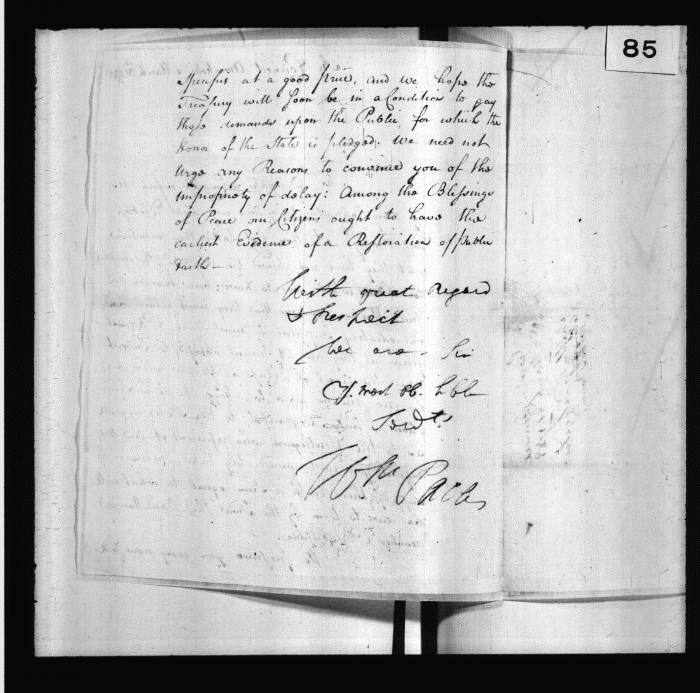 85
at a good price, and we hope the
Treasury will soon be in a Condition to pay
those demands upon the Public, for which the
Honor of the State is pledged. We need not
urge any Reasons to convince you of the
impropriety of delay: Among the Blessings
of Peace our Citizens ought to have the
earliest Evidence of a Restoration of public
faith—
With great Regard
& Respect
We are - Sir
Y. most ob. hble
Servts
Wm Paca